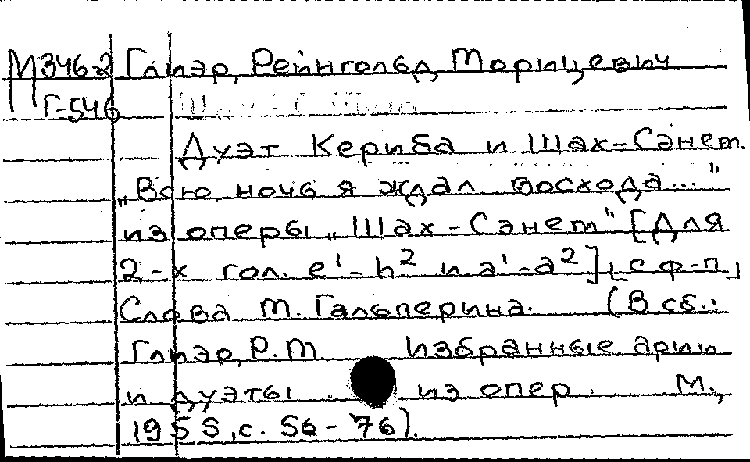 М346-2 Глиэр, Рейнгольд Морицевич
Г-546
Дуэт Кериба и Шах-Сэнем.
„Всю ночь я ждал восхода..."
из оперы „Шах-Сэнем" [Для
2-х гол. e'-h² и a'-a²] [с ф-п.]
Слова М. Гальперина. (В сб.:
Глиэр, Р. М Избранные арии
и дуэты из опер. М.,
1955, с. 56-76).